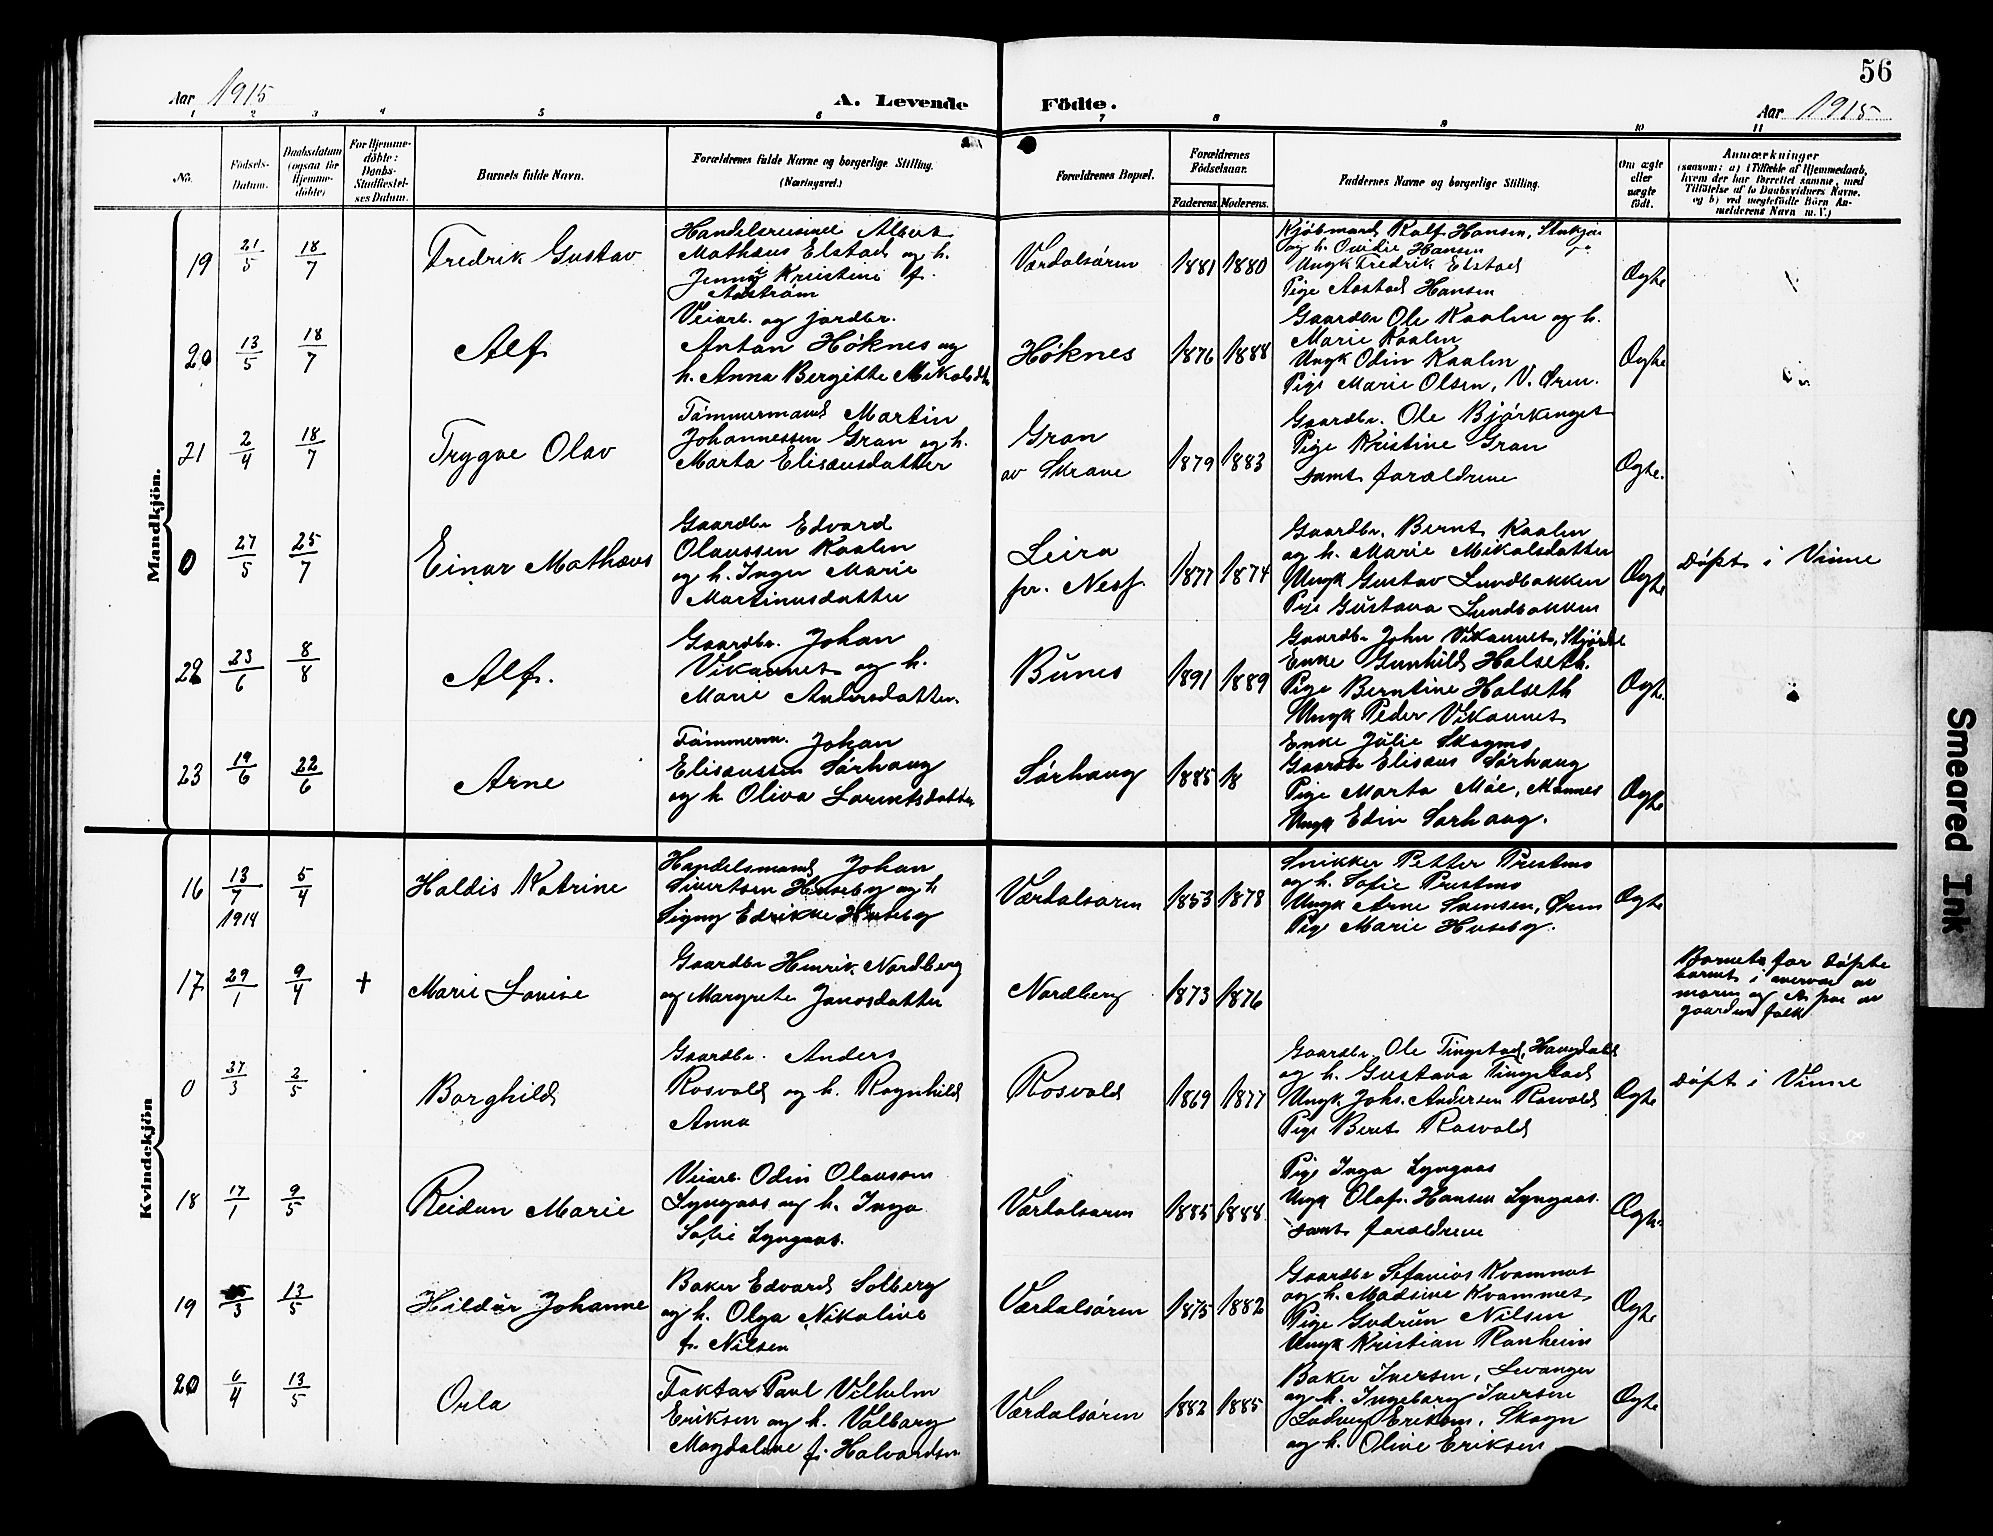 56
Aar 1915
A. Levende
Födte.
Aar 1915
1 2 3 4 5 6 7 8 9 10 11
No.
Födsels-
Datum.
Daabsdatum
(ogsaa for
Hjemme-
döbte)
For Hjemme-
döbte:
Daabs-
Stadfæstel-
ses Datum.
Barnets fulde Navn.
Forældrenes fulde Navne og borgerlige Stilling.
(Næringsvei.)
Forældrenes Bopæl.
Forældrenes
Födselsaar.
Faderens
Moderens.
Faddernes Navne og borgerlige Stilling.
Om ægte
eller
uægte
födt.
Anmærkninger
(saasom: a) i Tilfælde af Hjemmedaab,
hvem der har forrettet samme, med
Tilföielse af to Daabsvidners Navne.
og b) ved uegtefödte Börn An-
melderens Navn m. V.)
Mandkjön.
19
21/5
18/7
Fredrik Gustav
Handelsreisende Albert
Mathæus Elstad og h.
Jenny Kristine f.
Aastrøm
Værdalsøren
1881
1880
Kjøbmand Ralf Hansen,
og h. Ovidie Hansen
Ungk Fredrik Elstad
Pige Aastad Hansen
Ægte
20
13/5
18/7
Alf
Veiarb. og jordbr.
Anton Høknes og
h. Anna Bergitte Mikalsdtr
Høknes
1876
1888
Gaardbr Ole Kaalen og h.
Marie Kaalen
Ungk Odin Kaalen
Pige Marie Olsen, V. Øren.
Ægte
21
2/4
18/7
Trygve Olav
Tømmermand Martin
Johannessen Gran og h.
Marta Elisæusdatter
Gran
av Skrove
1879
1883
Gaardbr. Ole Bjørkenget
Pige Kristine Gran
samt forældrene
Ægte.
0
27/5
25/7
Einar Mathæus
Gaardbr Edvard
Olaussen Kaalen
og h. Inger Marie
Martinusdatter
Leira
pr. Ness
1877
1874
Gaardbr. Bernt Kaalen
og h. Marie Mikalsdatter
Ungk Gustav Lundbakken
Pige Gustava Lundbakken
Ægte
Døpt i Vinne
22
23/6
8/8
Alf.
Gaardbr. Johan
Vikannet og h.
Marie Andersdatter.
Bunes
1891
1889
Gaardbr John Vikannet,
Enke Gunhild Halseth.
Pige Berntine Halseth
Ungk Peder Vikannet
Ægte.
23
19/6
22/6
Arne
Tømmerm. Johan
Elisæussen Sørhaug
og h Oliva Lorentsdatter
Sørhaug
1885
18
Enke Julie Skogmo
Gaardbr Elisæus Sørhaug
Pige Marta Moe,
Ungk Edin Sørhaug.
Ægte
Kvindekjön
16
13/7
1914
5/4
Haldis Katrine
Handelsmand Johan
Sivertsen Huseby og h
Signy Edrikke Huseby
Værdalsøren
1853
1878
Snikker Petter Prestmo
og h. Sofie Prestmo
Ungk Arne Svensen, Øren
Pige Marie Huseby.
Ægte
17
29/1
9/4
+
Marie Lovise
Gaardbr Henrik Nordberg
og Margrete Jonasdatter
Nordberg
1873
1876
Barnets far døpte
barnet i nærvær av
moren og et par av
gaardens folk
0
27/3
2/5
Borghild
Gaardbr. Anders
Rosvold og h. Ragnhild
Anna
Rosvold
1869
1877
Gaardbr. Ole Tingstad,
og h. Gustava Tingstad
Ungk. Johs. Andersen Rosvold
Pige Beret Rosvold
Ægte
Døpt i Vinne
18
17/1
9/5
Reidun Marie
Veiarb. Odin Olausen
Lyngaas og h. Inga
Sofie Lyngaas.
Værdalsøren
1885
1888
Pige Inga Lyngaas
Ungk Olaf Hansen Lyngaas.
samt forældrene
Ægte
19
/3
13/5
Hildur Johanne
Baker Edvard Solberg
og h. Olga Nikoline
f. Nilsen
Værdalsøren
1875
1882
Gaardbr Stefanius Kvammet
og h. Madsine Kvammet
Pige Gudrun Nilsen
Ungk Kristian Ranheim
Ægte
20
6/4
13/5
Orla
Faktor Paul Vilhelm
Eriksen og h. Valborg
Magdalene f. Halvardsen
Værdalsøren
1882
1885
Baker Iversen, Levanger
og h. Ingeborg Iversen
Ludvig Eriksen, Skogn
og h. Olive Eriksen
Ægte
Smeared Ink